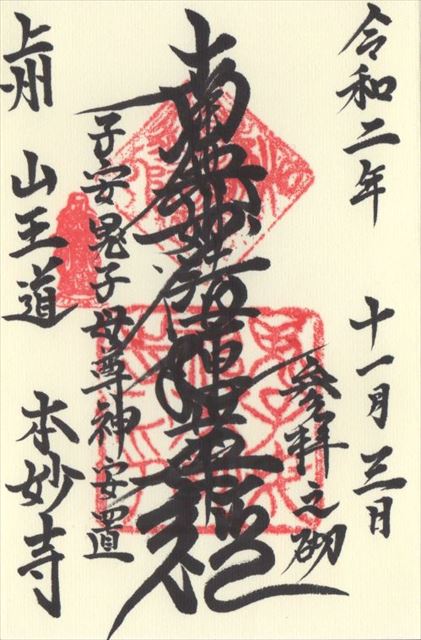 令和二年 十一月三日
参拝之砌
南無妙法蓮華経
子安鬼子母尊神安置
上州 山王道 本妙寺